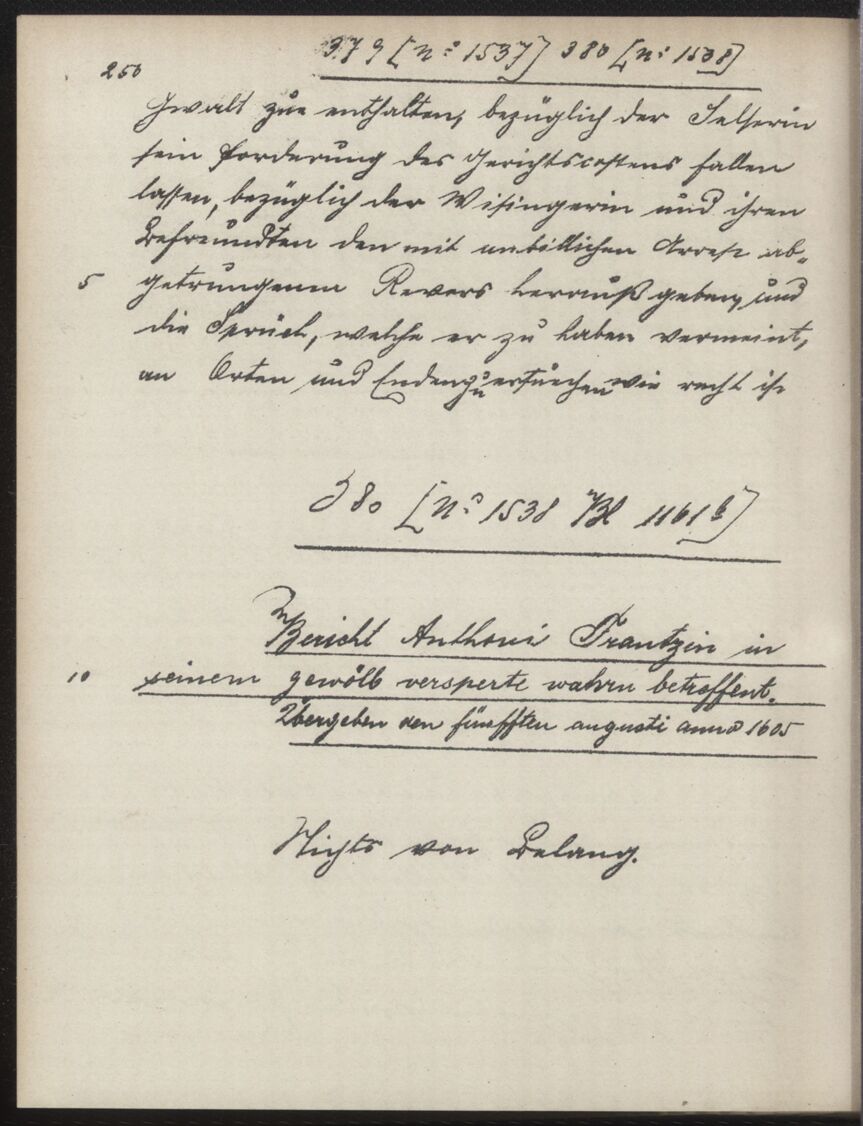 379 [No 1537] 380 [No 1538]
250
Gwalt zue enthalten, bezüglich der Selserin
sein forderung des Gerichtscostens fallen
lassen, bezüglich der Wisingerin und ihren
Befreundten den mit unbillichen Arrest ab-
5 getrungenen Revers herauß geben, und
die Sprüch, welche er zu haben vermeint,
an Orten und Enden zu ersuechen wie recht ist
380 [No 1538 Bl 1161b]
Bericht Anthoni Frantzin in
10 seinem gewölb versperte wahrn betreffent.
Übergeben den fünfften augusti anno 1605
Nichts von Belang.